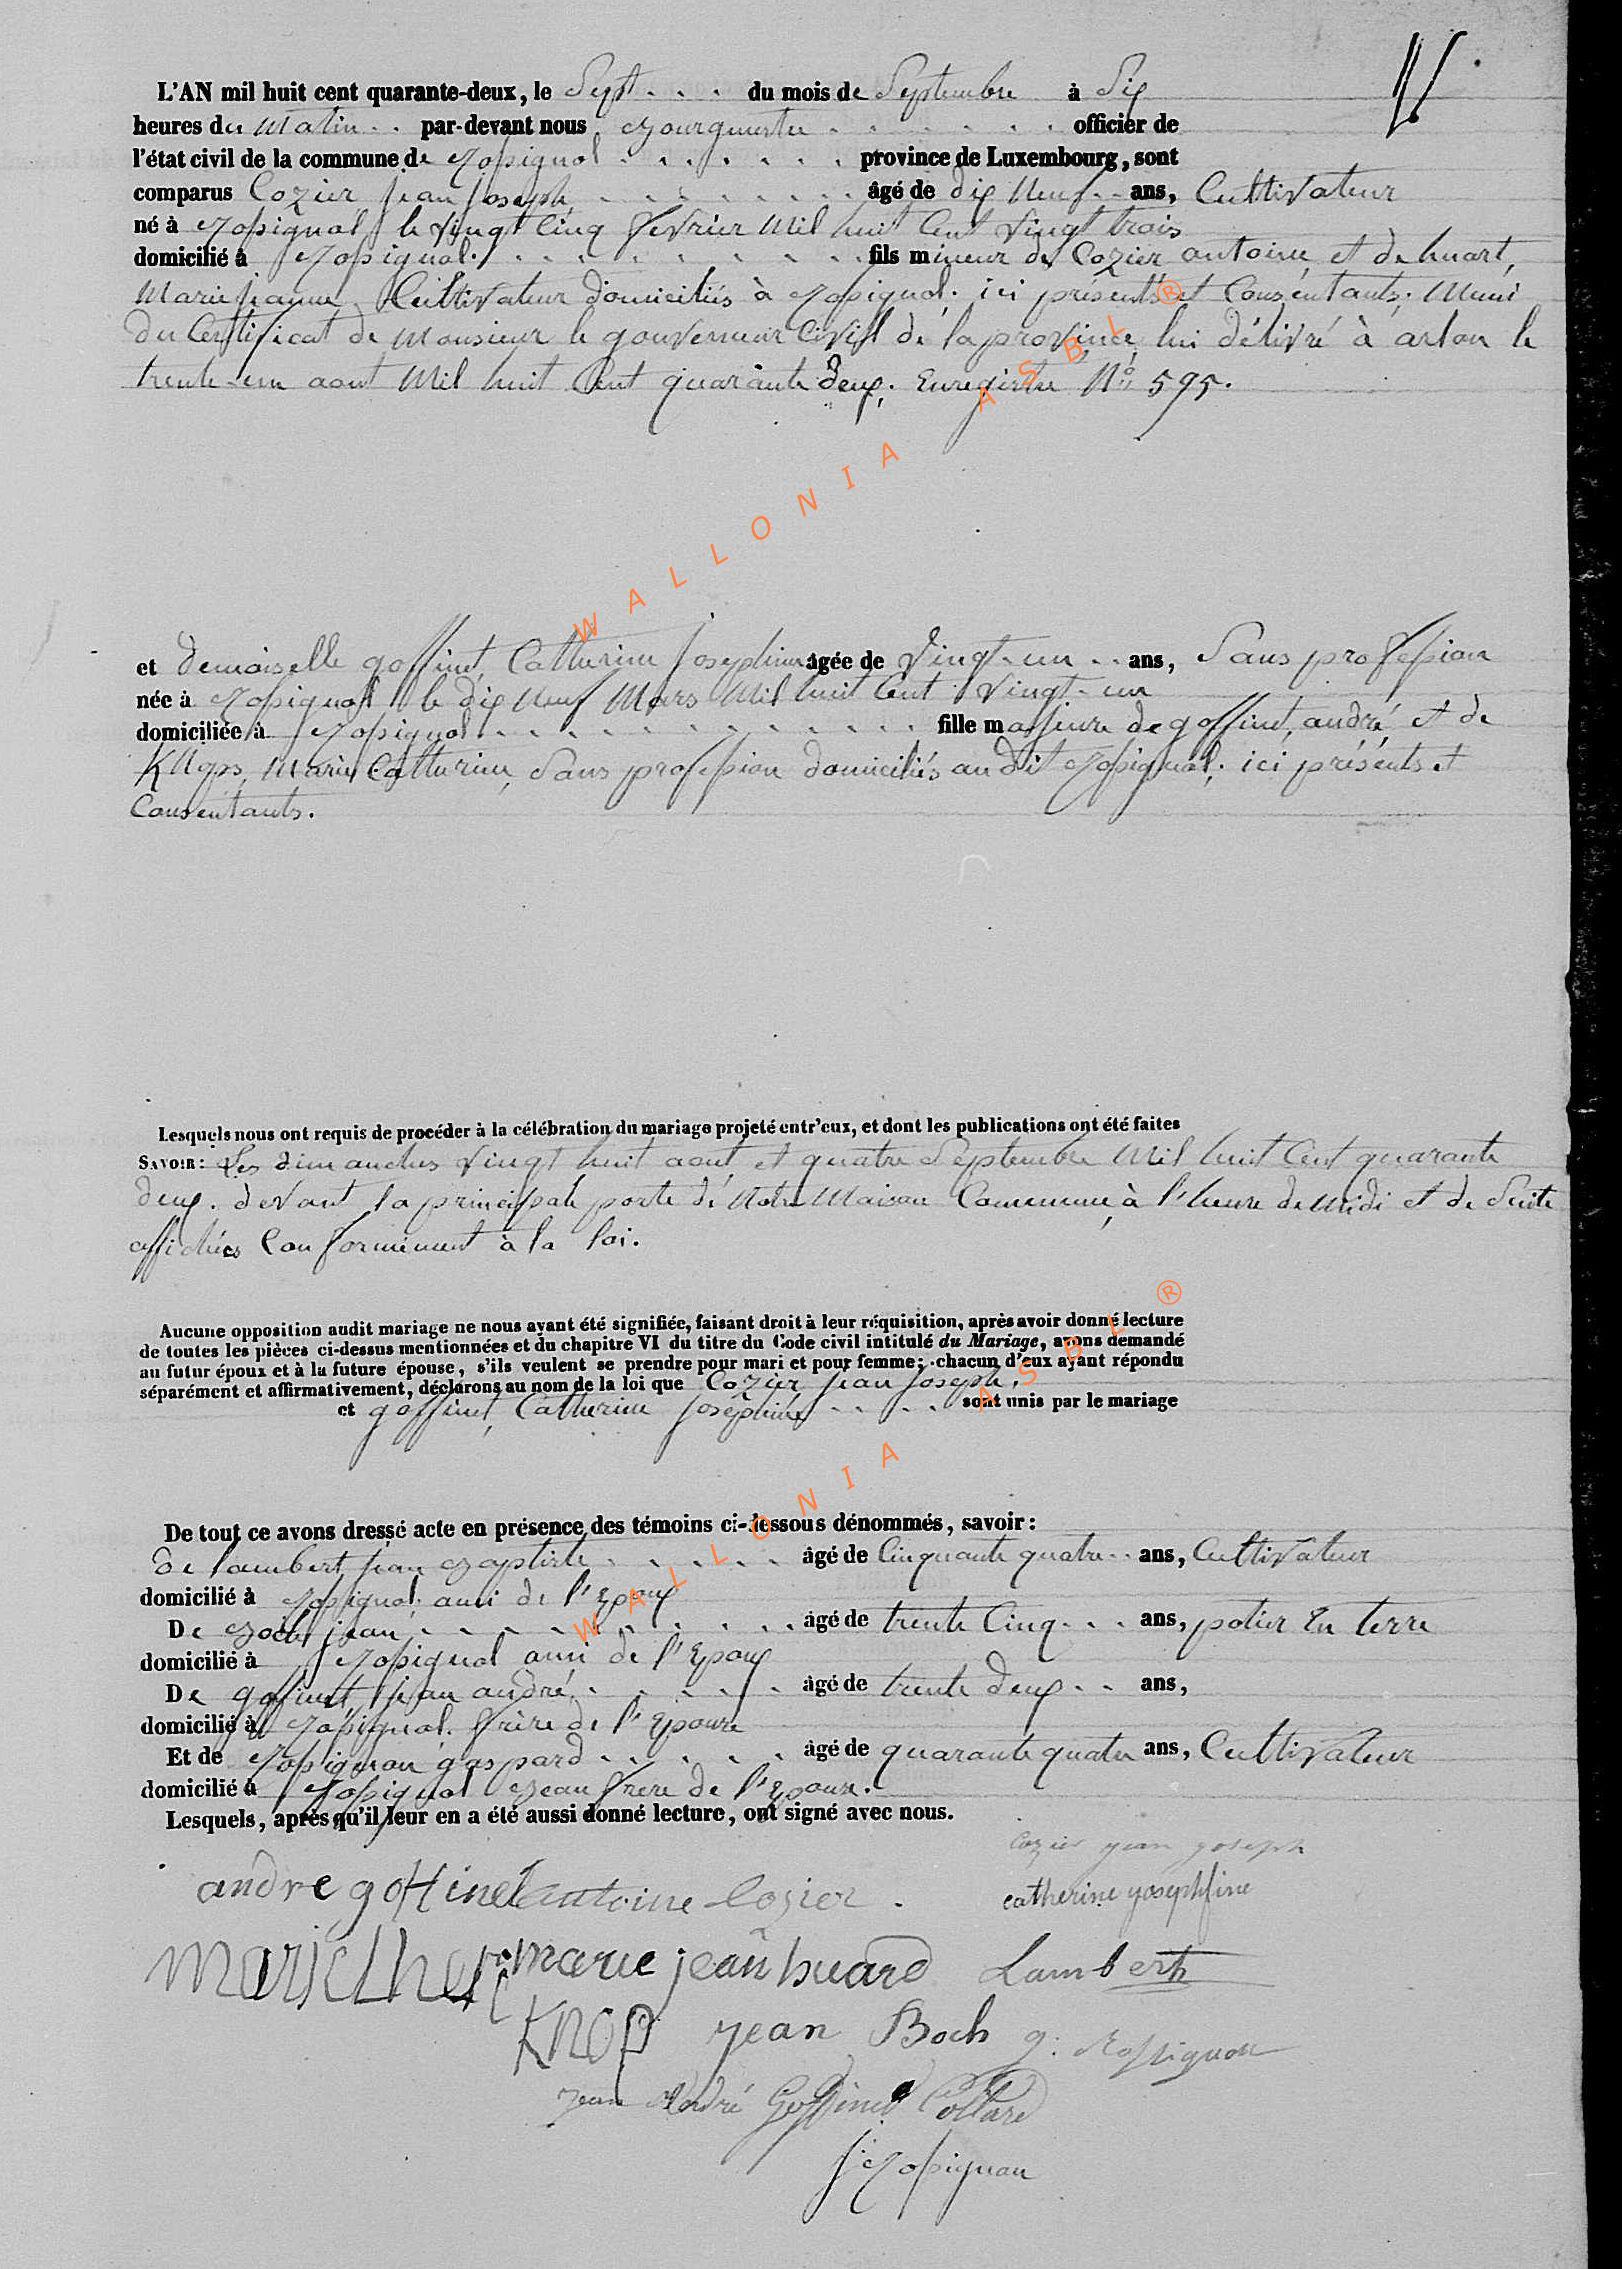 L'AN mil huit cent quarante-deux, le Sept du mois de Septembre à Six
heures du Matin par-devant nous Bourgmestre officier de
l'état civil de la commune de Rossignol province de Luxembourg, sont
comparus Cozier jean joseph âgé de dix Neuf ans, Cultivateur
né à Rossignol le vingt Cinq fevrier Mil huit Cent vingt trois
domicilié à Rossignol. fils mineur de Cozier antoine et de huart,
Marie jeanne, Cultivateur domiciliés à Rossignol. ici présents et Consentants. Muni
du Certificat de Monsieur le gouverneur Civil de la province, lui délivré à arlon le
trente-un aout Mil huit Cent quarante deux. Enregistré Nº 595.
et demoiselle goffinet, Catherine josephine âgée de Vingt-un ans, Sans profession
née à Rossignol le dix Neuf Mars Mil huit Cent Vingt-un
domiciliée à Rossignol fille majeure de goffinet, andré, et de
Marie Catherine, Sans profession domiciliés audit Rossignol. ici présents et
Consentants.
Lesquels nous ont requis de procéder à la célébration du mariage projeté entr'eux, et dont les publications ont été faites
SAVOIR: Les dimanches vingt huit aout et quatre Septembre Mil huit Cent quarante
deux. devant la principale porte de Notre Maison Commune, à l'heure de Midi et de Suite
affichées Conformément à la loi.
Aucune opposition audit mariage ne nous ayant été signifiée, faisant droit à leur réquisition, après avoir donné lecture
de toutes les pièces ci-dessus mentionnées et du chapitre VI du titre du Code civil intitulé du Mariage, avons demandé
au futur époux et à la future épouse, s'ils veulent se prendre pour mari et pour femme; chacun d'eux ayant répondu
séparément et affirmativement, déclarons au nom de la loi que Cozier jean joseph.
et goffinet, Catherine josephine sont unis par le mariage
De tout ce avons dressé acte en présence des témoins ci-dessous dénommés, savoir:
De lambert jean Baptiste âgé de Cinquante quatre ans, Cultivateur
domicilié à Rossignol. ami de l'Epoux
De Boch, jean âgé de trente Cinq ans, potier En terre
domicilié à Rossignol ami de l'Epoux
De goffinet, jean andré âgé de trente deux ans,
domicilié à Rossignol. frère de l'Epouse
Et de Rossignon gaspard âgé de quarante quatre ans, Cultivateur
domicilié à Rossignol Beau frere de l'Epouse.
Lesquels, après qu'il leur en a été aussi donné lecture, ont signé avec nous.
Cozier jean joseph
andre goffinet antoine Cozier. catherine yosephfine
marie jean huard Lambert
KNOP jean Boch g. Rossignon
jean André Goffinet Collard
J. Rossignon
WALLONIA ASBL ®
WALLONIA ASBL ®